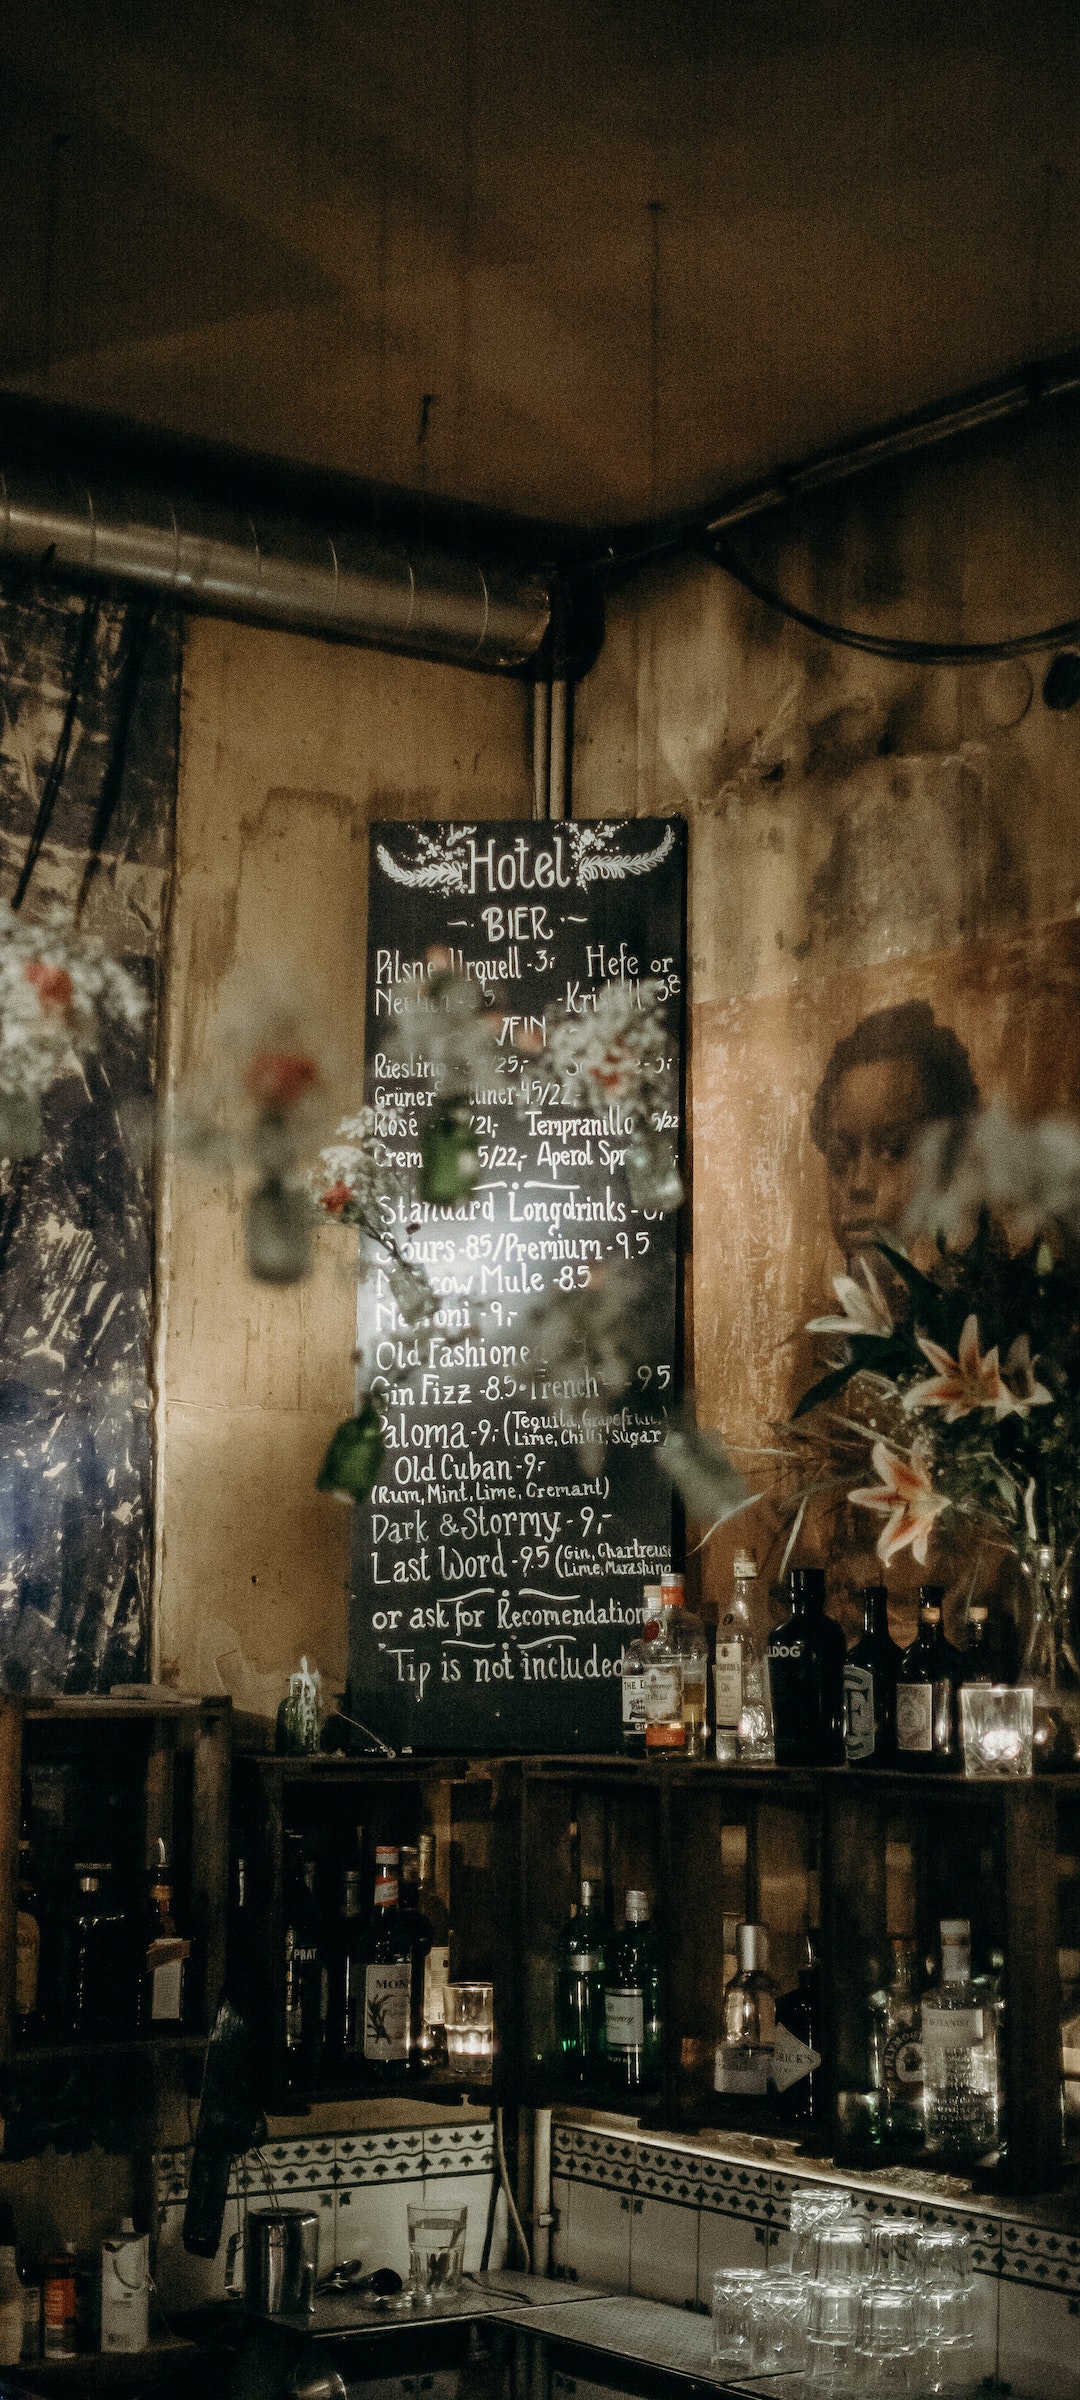 das
Hotel
BIER
Pilsne Urquell - 3,- Hefe or
- 5 - Kri ll 3.8
WEIN
Riesling 25,-
Grüner liner - 4.5/22,-
Rosé /21,- Tempranillo 5/22
Crem 5/22,- Aperol Spr
Standard Longdrinks -
Sours - 8.5/Premium - 9.5
Moscow Mule - 8.5
Negroni - 9,-
Old Fashione
Gin Fizz - 8.5 • French 9.5
Paloma - 9,- (Tequila, Grapefruit,
Lime, Chilli, Sugar)
Old Cuban - 9,-
(Rum, Mint, Lime, Cremant)
Dark & Stormy - 9,-
Last Word - 9.5 (Gin, Chartreuse
Lime, Marashino
or ask for Recomendation
Tip is not included
THE
GIN
LDOG
PRAT
MON
BOTANIST
RICK'S